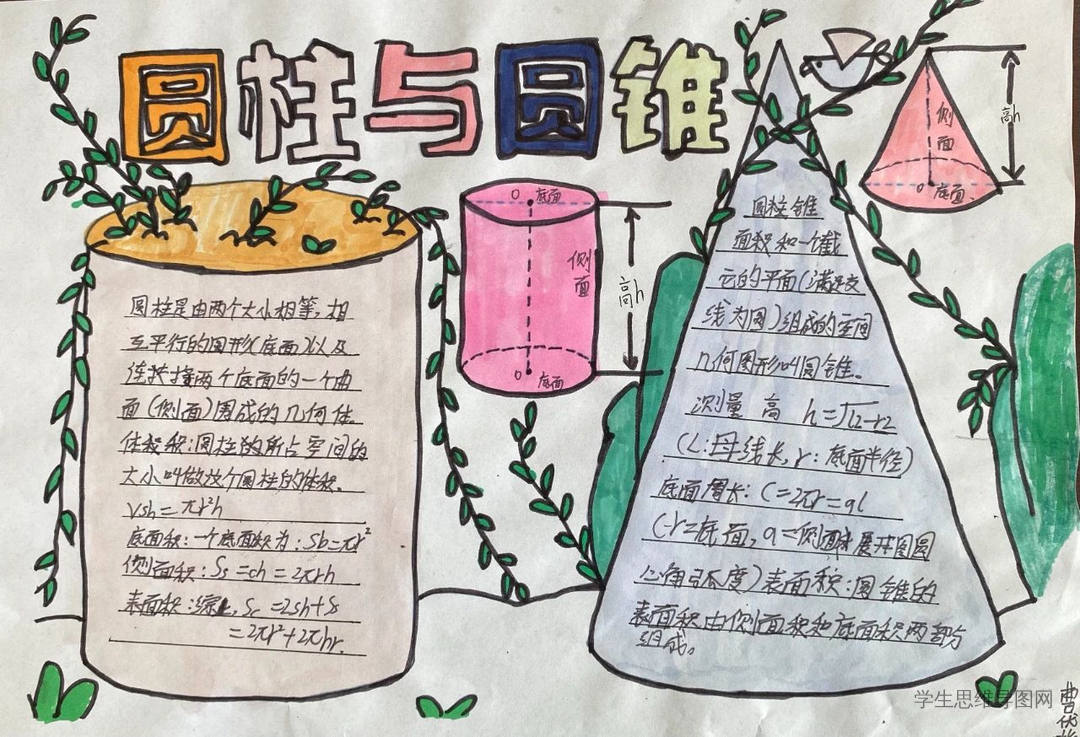 圆柱与圆锥
圆柱是由两个大小相等，相
互平行的圆形（底面）以及
连接两个底面的一个曲
面（侧面）围成的几何体。
体积：圆柱的所占空间的
大小叫做这个圆柱的体积。
Vsh=πr²h
底面积：一个底面积为：Sb=πr²
侧面积：Ss=ch=2πrh
表面积：综上，Sc=2sh+s
=2πr²+2πhr.
O 底面
侧面
高h
O 底面
圆柱锥
面积和一个截
它的平面（满足交
线为圆）组成的空间
几何图形叫圆锥。
测量 高 h=√l2-r2
（L：母线长，r：底面半径）
底面周长：C=2πr=al
（r=底面，a=侧面展开图圆
心角弧度）表面积：圆锥的
表面积由侧面积和底面积两部分
组成。
侧面
高h
O 底面
学生思维导图网